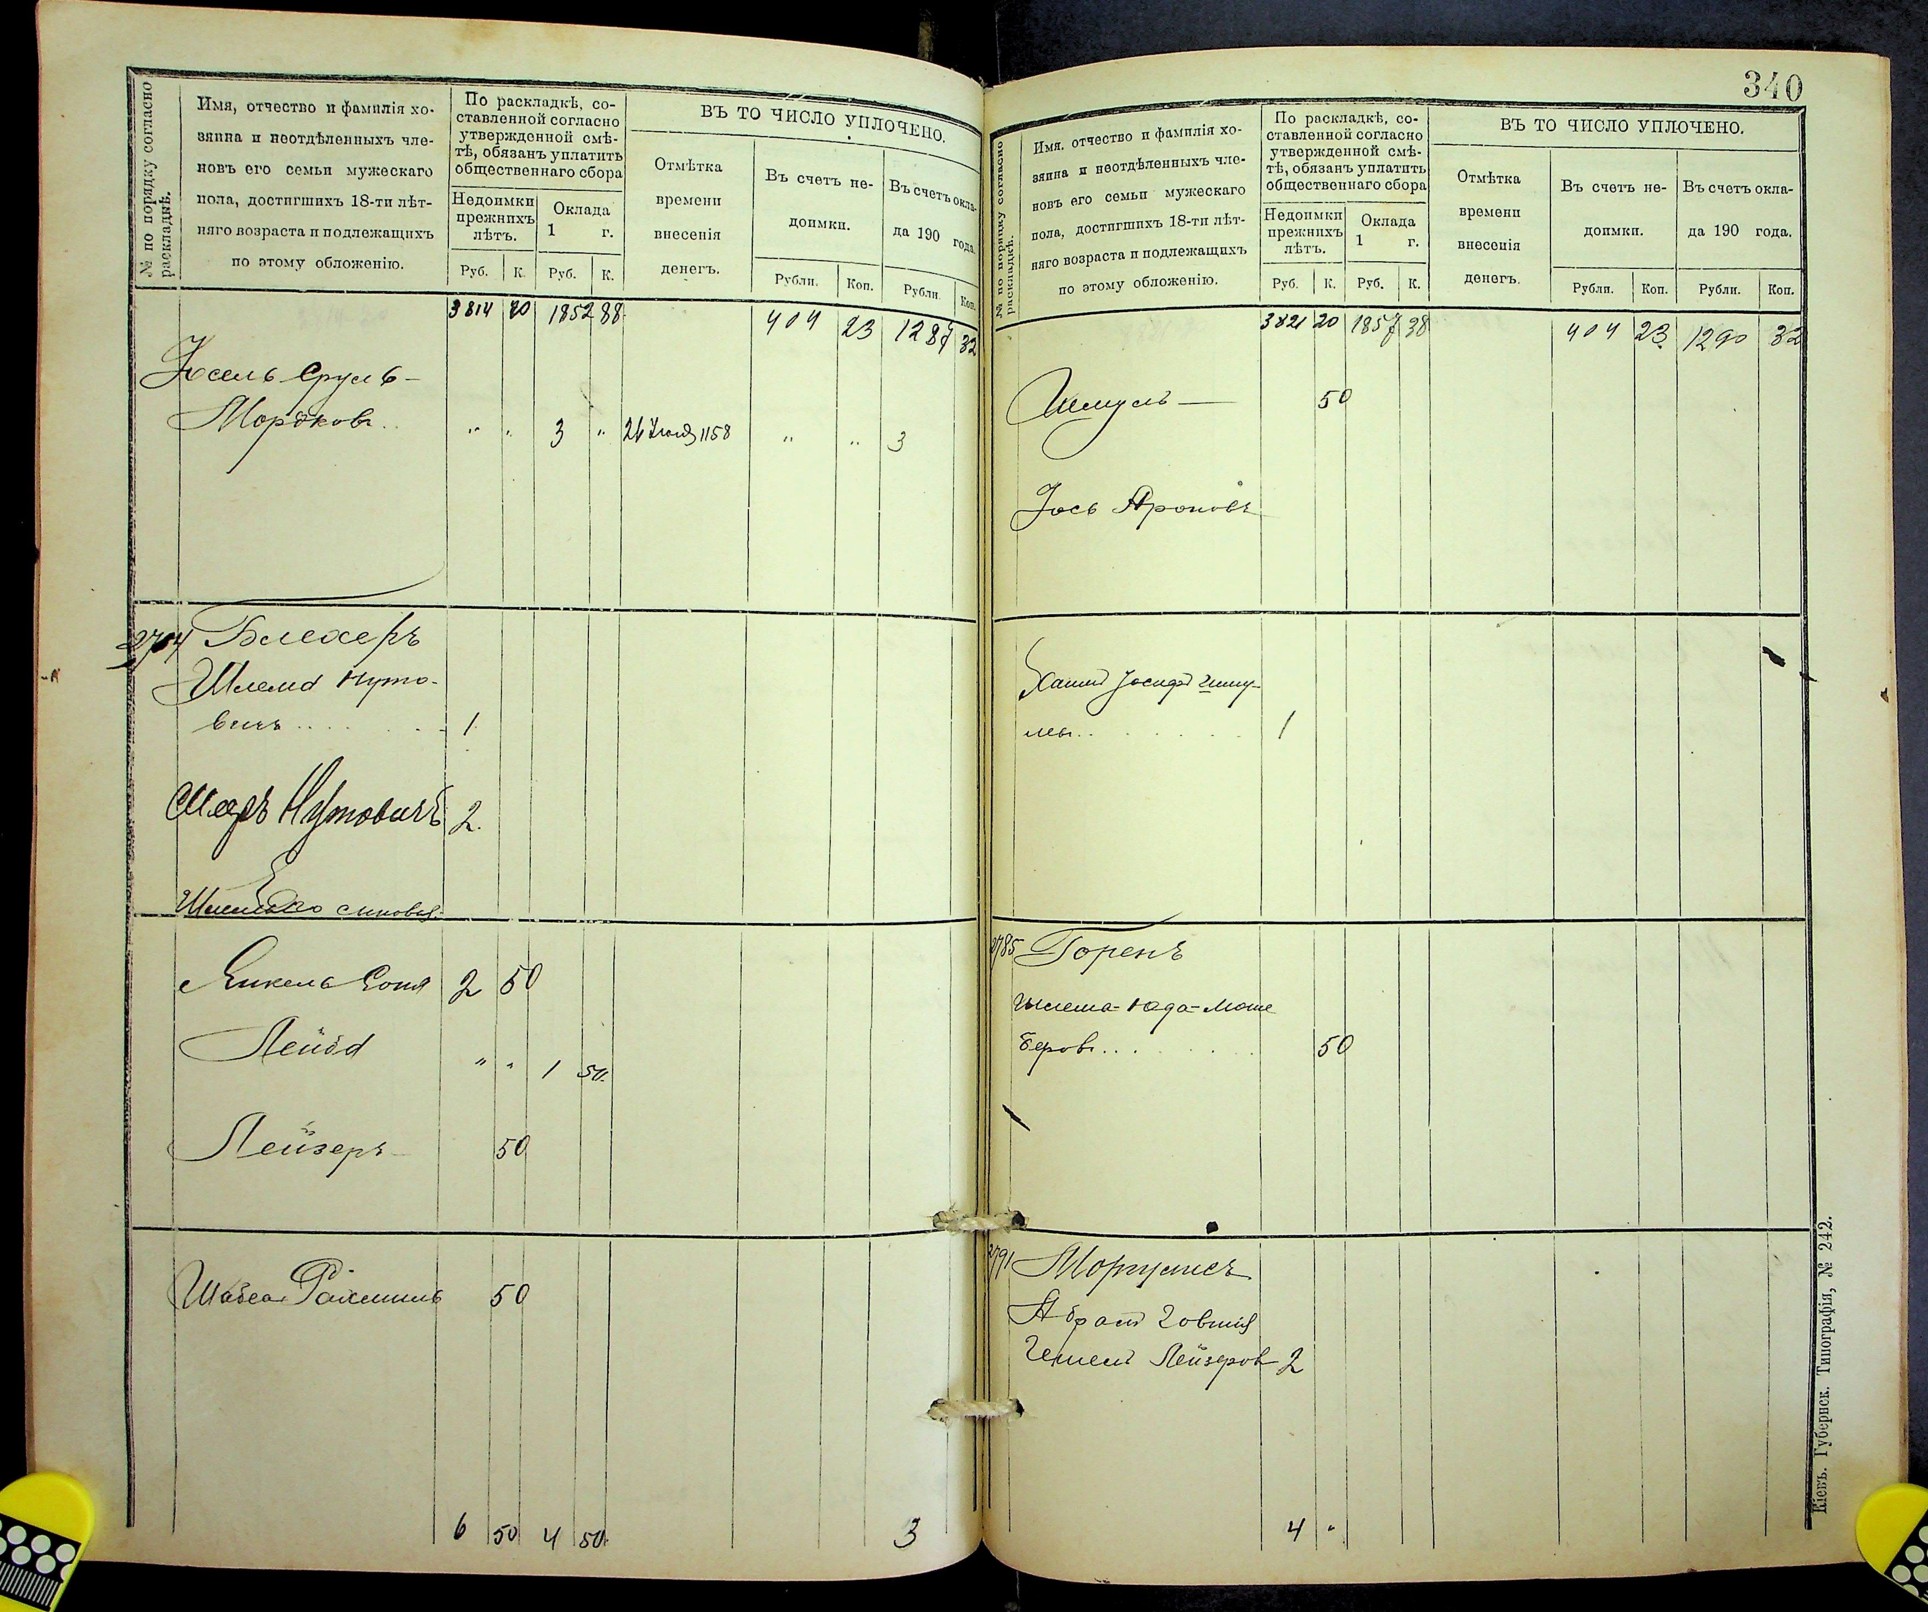 № по порядку согласно
раскладкѣ.
Имя, отчество и фамилія хо-
зяина и неотдѣленныхъ чле-
новъ его семьи мужескаго
пола, достигшихъ 18-ти лѣт-
няго возраста и подлежащихъ
по этому обложенію.
По раскладкѣ, со-
ставленной согласно
утвержденной смѣ-
тѣ, обязанъ уплатить
общественнаго сбора
Недоимки
прежнихъ
лѣтъ.
Оклада
1 г.
Руб. К. Руб. К.
ВЪ ТО ЧИСЛО УПЛОЧЕНО.
Отмѣтка
времени
внесенія
денегъ.
Въ счетъ не-
доимки.
Въ счетъ окла-
да 190 года.
Рубли. Коп. Рубли. Коп.
3814 70 1852 88 404 23 1287 32
Іосель Сруль-
Мордковъ.. " " 3 " 1158 " " 3
Блехеръ
Шлема Нуто-
вичъ 1
Мееръ Нутовичъ 2
Янкель 2 50
Лейба " " 1 50
Лейзеръ 50
50
6 50 4 50 3
340
№ по порядку согласно
раскладкѣ.
Имя, отчество и фамилія хо-
зяина и неотдѣленныхъ чле-
новъ его семьи мужескаго
пола, достигшихъ 18-ти лѣт-
няго возраста и подлежащихъ
по этому обложенію.
По раскладкѣ, со-
ставленной согласно
утвержденной смѣ-
тѣ, обязанъ уплатить
общественнаго сбора
Недоимки
прежнихъ
лѣтъ.
Оклада
1 г.
Руб. К. Руб. К.
ВЪ ТО ЧИСЛО УПЛОЧЕНО.
Отмѣтка
времени
внесенія
денегъ.
Въ счетъ не-
доимки.
Въ счетъ окла-
да 190 года.
Рубли. Коп. Рубли. Коп.
3821 20 1857 38 404 23 1290 32
Шмуль 50
Іось Ароновъ
Хаимъ Іосифъ
1
2785 Горенъ
Юда-Моше
Беровъ... 50
2791 Моргулисъ
Абрамъ
Лейзеров 2
4 "
Кіевъ. Губернск. Типографія, № 242.